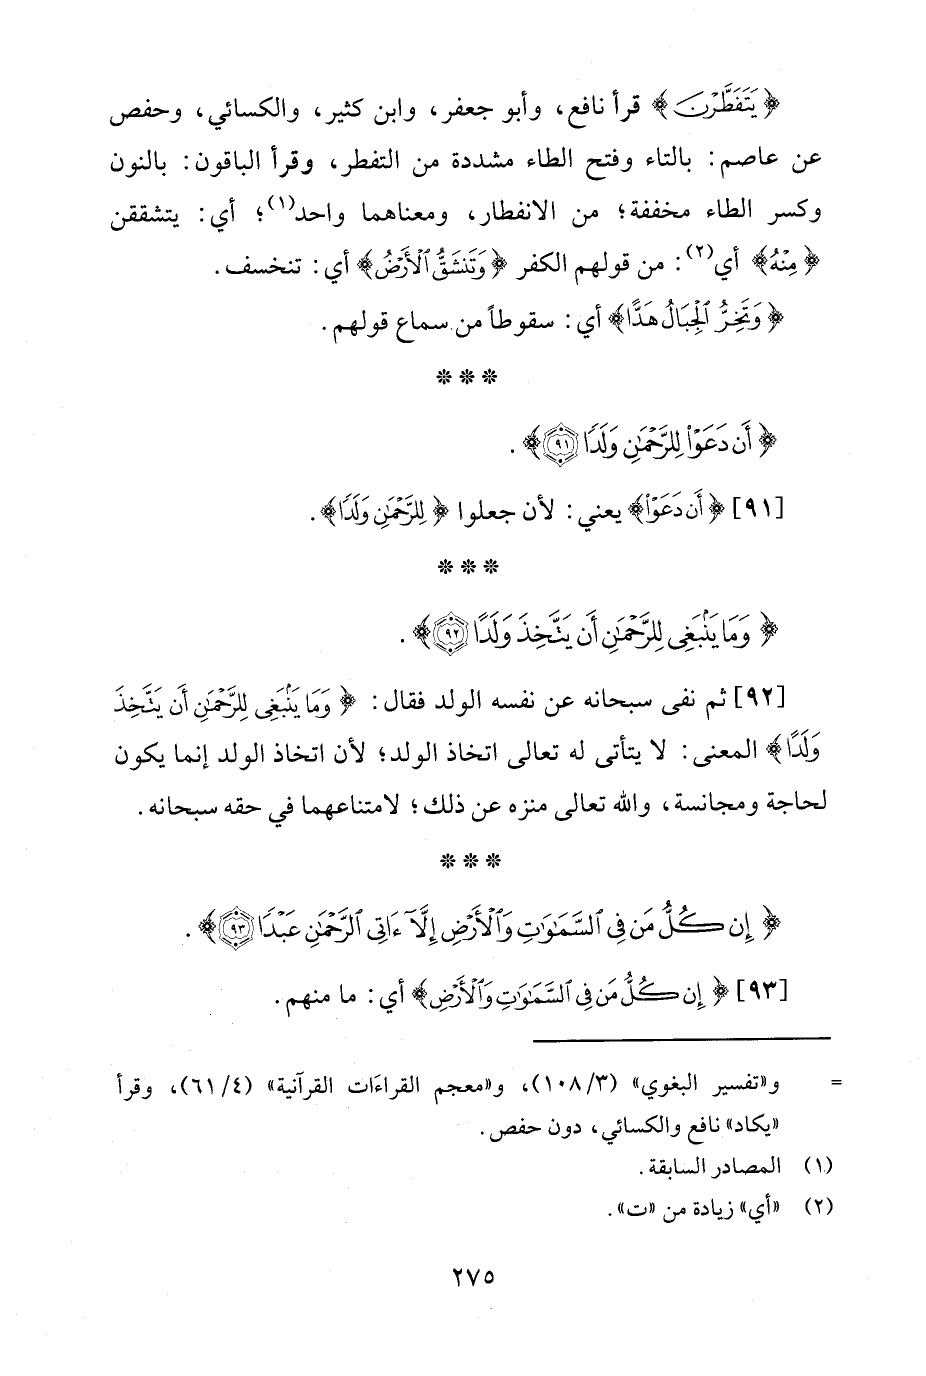 ﴿يَتَفَطَّرْنَ﴾ قرأ نافع، وأبو جعفر، وابن كثير، والكسائي، وحفص
عن عاصم: بالتاء وفتح الطاء مشددة من التفطر، وقرأ الباقون: بالنون
وكسر الطاء مخففة؛ من الانفطار، ومعناهما واحد(١)؛ أي: يتشققن
﴿مِنْهُ﴾ أي(٢): من قولهم الكفر ﴿وَتَنشَقُّ ٱلْأَرْضُ﴾ أي: تنخسف.
﴿وَتَخِرُّ ٱلْجِبَالُ هَدًّا﴾ أي: سقوطاً من سماع قولهم.
* * *
﴿أَن دَعَوْا۟ لِلرَّحْمَٰنِ وَلَدًا ٩١﴾.
[٩١] ﴿أَن دَعَوْا۟﴾ يعني: لأن جعلوا ﴿لِلرَّحْمَٰنِ وَلَدًا﴾.
* * *
﴿وَمَا يَنۢبَغِى لِلرَّحْمَٰنِ أَن يَتَّخِذَ وَلَدًا ٩٢﴾.
[٩٢] ثم نفى سبحانه عن نفسه الولد فقال: ﴿وَمَا يَنۢبَغِى لِلرَّحْمَٰنِ أَن يَتَّخِذَ
وَلَدًا﴾ المعنى: لا يتأتى له تعالى اتخاذ الولد؛ لأن اتخاذ الولد إنما يكون
لحاجة ومجانسة، والله تعالى منزه عن ذلك؛ لامتناعهما في حقه سبحانه.
* * *
﴿إِن كُلُّ مَن فِى ٱلسَّمَٰوَٰتِ وَٱلْأَرْضِ إِلَّآ ءَاتِى ٱلرَّحْمَٰنِ عَبْدًا ٩٣﴾.
[٩٣] ﴿إِن كُلُّ مَن فِى ٱلسَّمَٰوَٰتِ وَٱلْأَرْضِ﴾ أي: ما منهم.
= و«تفسير البغوي» (٣/ ١٠٨)، و«معجم القراءات القرآنية» (٤/ ٦١)، وقرأ
«يكاد» نافع والكسائي، دون حفص.
(١) المصادر السابقة.
(٢) «أي» زيادة من «ت».
٢٧٥